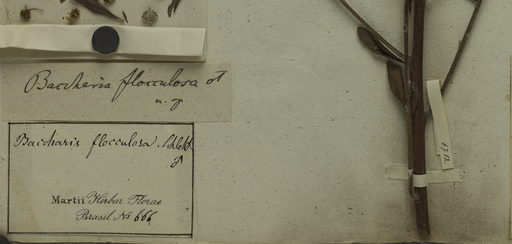 Baccharis flocculosa
n. sp
Baccharis flocculosa. Schldl
♂
Martii Herbar. Florae
Brasil No 666.